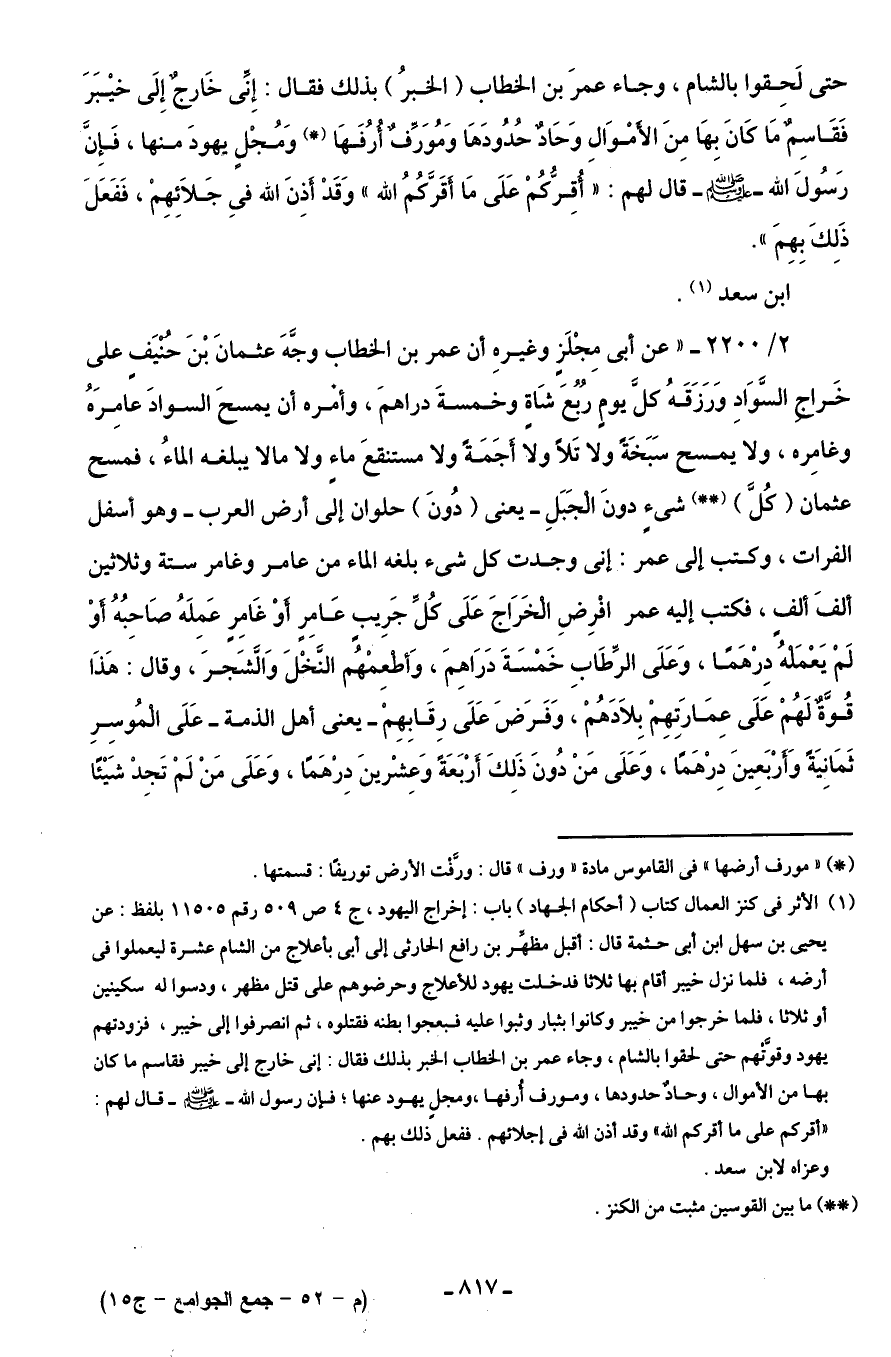 حتى لَحِقوا بالشام ، وجاء عمرَ بن الخطاب ( الخبرُ ) بذلك فقال : إِنِّى خَارِجٌ إِلَى خَيْبَرَ
فَقَاسِمٌ مَا كَانَ بِهَا مِنَ الأَمْوَالِ وَحَادٌّ حُدُودَهَا وَمُوَرِّفٌ أُرُفَهَا (*) وَمُجْلٍ يهودَ منها ، فَإِنَّ
رَسُولَ الله ـ ﷺ ـ قال لهم : « أُقِرُّكُمْ عَلَى مَا أَقَرَّكُمُ الله » وَقَدْ أَذِنَ الله فى جَلاَئِهِمْ ، فَفَعَلَ
ذَلِكَ بِهِمَ ».
ابن سعد (١) .
٢/ ٢٢٠٠ ـ « عن أبى مِجْلَزٍ وغيرِهِ أن عمر بن الخطاب وجَّهَ عثمانَ بْنَ حُنَيْفٍ على
خَراجِ السَّوَادِ وَرَزَقَهُ كلَّ يومٍ رُبُعَ شَاةٍ وخمسةَ دراهمَ ، وأمْره أن يمسحَ السوادَ عامِرَهُ
وغامِره ، ولا يمسح سَبَخَةً ولا تَلاً ولا أَجَمَةً ولا مستنقعَ ماءٍ ولا مالا يبلغه الماءُ ، فمسح
عثمان ( كُلَّ ) (**) شىءٍ دونَ الْجَبَلِ ـ يعنى ( دُونَ ) حلوان إلى أرض العرب ـ وهو أسفل
الفرات ، وكتب إلى عمر : إنى وجدت كل شىء بلغه الماء من عامر وغامر ستة وثلاثين
ألفَ ألفٍ ، فكتب إليه عمر افْرِضِ الْخَرَاجَ عَلَى كُلِّ جَرِيبٍ عَامِرٍ أَوْ غَامِرٍ عَمِلَهُ صَاحِبُهُ أَوْ
لَمْ يَعْمَلْهُ دِرْهَمًا ، وَعَلَى الرِّطَابِ خَمْسَةَ دَرَاهِمَ ، وَأَطْعِمْهُم النَّخْلَ وَالشَّجرَ ، وقال : هَذَا
قُوَّةٌ لَهُمْ عَلَى عِمَارَتِهِمْ بِلاَدَهُمْ ، وَفَرَضَ عَلَى رِقَابِهِمْ ـ يعنى أهل الذمة ـ عَلَى الْمُوسِرِ
ثَمَانِيَةً وَأَرْبَعِينَ دِرْهَمًا ، وَعَلَى مَنْ دُونَ ذَلِكَ أَرْبَعَةً وَعِشْرِينَ دِرْهَمًا ، وَعَلَى مَنْ لَمْ تَجِدْ شَيْئًا
(*) « مورف أرضها » فى القاموس مادة « ورف » قال : ورَّفْت الأرض توريفًا : قسمتها .
(١) الأثر فى كنز العمال كتاب ( أحكام الجهاد ) باب : إخراج اليهود ، ج ٤ ص ٥٠٩ رقم ١١٥٠٥ بلفظ : عن
يحيى بن سهل ابن أبى حثمة قال : أقبل مظهِّر بن رافع الحارثى إلى أبى بأعلاج من الشام عشرة ليعملوا فى
أرضه ، فلما نزل خيبر أقام بها ثلاثا فدخلت يهود للأعلاج وحرضوهم على قتل مظهر ، ودسوا له سكينين
أو ثلاثا ، فلما خرجوا من خيبر وكانوا بثبار وثبوا عليه فبعجوا بطنه فقتلوه ، ثم انصرفوا إلى خيبر ، فزودتهم
يهود وقوَّتْهم حتى لحقوا بالشام ، وجاء عمر بن الخطاب الخبر بذلك فقال : إنى خارج إلى خيبر فقاسم ما كان
بها من الأموال ، وحادٌ حدودها ، ومورف أُرفها ،ومجلٍ يهود عنها ؛ فإن رسول الله ـ ﷺ ـ قال لهم :
«أقركم على ما أقركم الله» وقد أذن الله فى إجلائهم . ففعل ذلك بهم .
وعزاه لابن سعد .
(**) ما بين القوسين مثبت من الكنز .
ـ ٨١٧ ـ
(م – ٥٢ – جمع الجوامع – ج١٥)